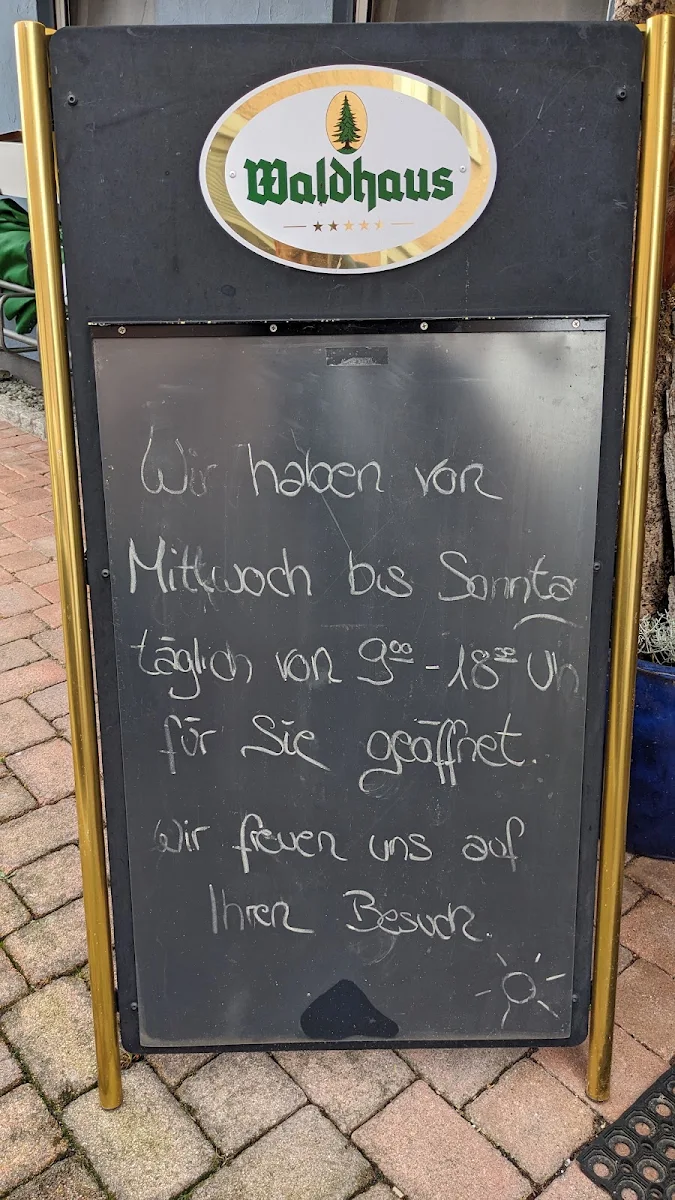 Waldhaus
Wir haben von
Mittwoch bis Sonnta
täglich von 9⁰⁰ - 18⁰⁰ Uh
für Sie geöffnet.
Wir freuen uns auf
Ihren Besuch.